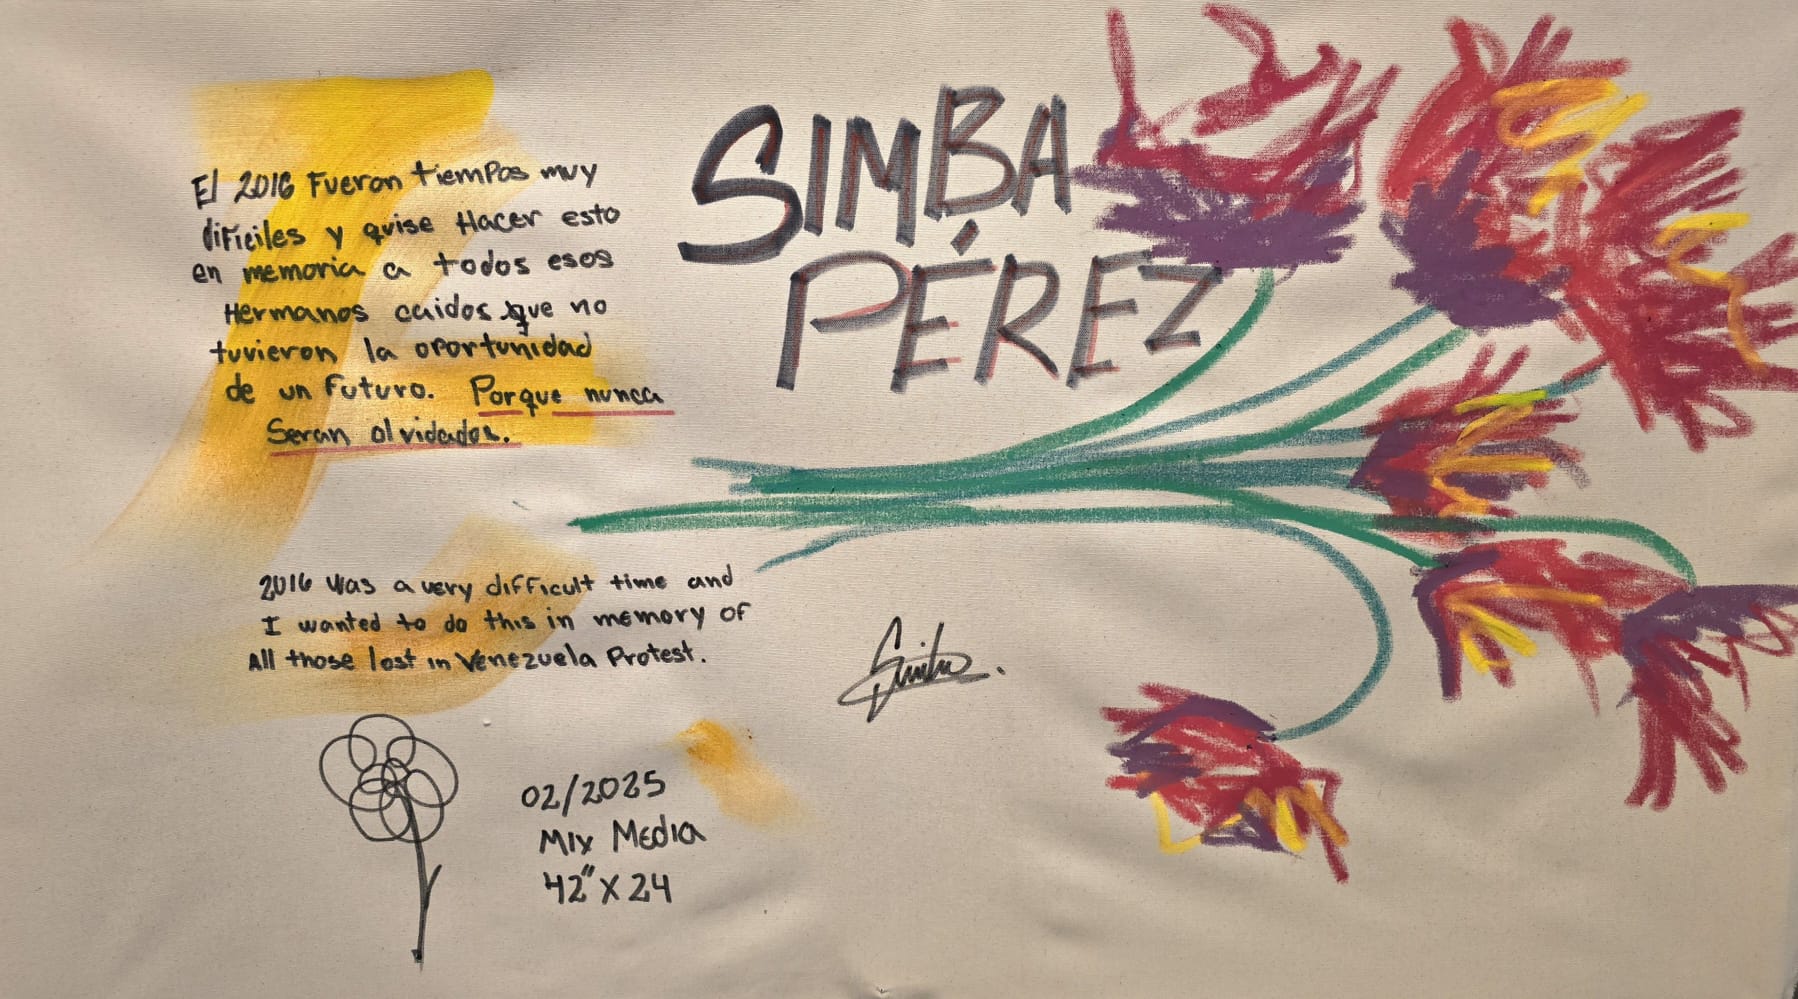 El 2016 Fueron tiempos muy
difíciles y quise Hacer esto
en memoria a todos esos
Hermanos caidos que no
tuvieron la oportunidad
de un Futuro. Porque nunca
Seran olvidados.
SIMBA
PÉREZ
2016 was a very difficult time and
I wanted to do this in memory of
All those lost in Venezuela Protest.
Simba.
02/2025
Mix Media
42" X 24